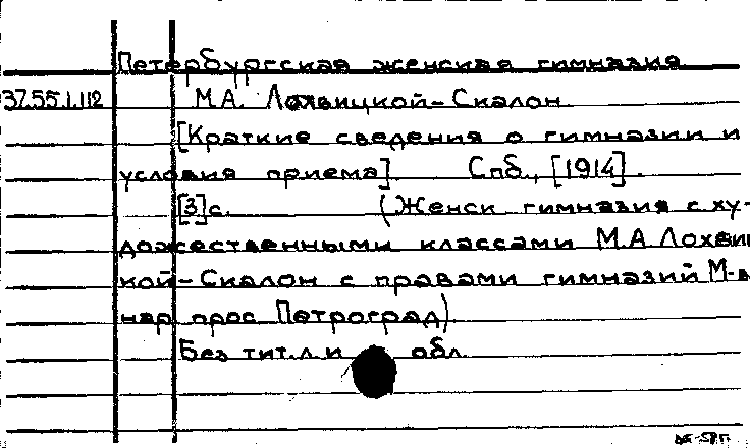 Петербургская женская гимназия
37.55.1.112 М.А. Лохвицкой-Скалон
[Краткие сведения о гимназии и
условия приема]. Спб., [1914].
[3]с. (Женск гимназия с ху-
дожественными классами М.А Лохвиц
кой-Скалон с правами гимназий М-ва
нар прос Петроград).
Без тит. л. и обл.